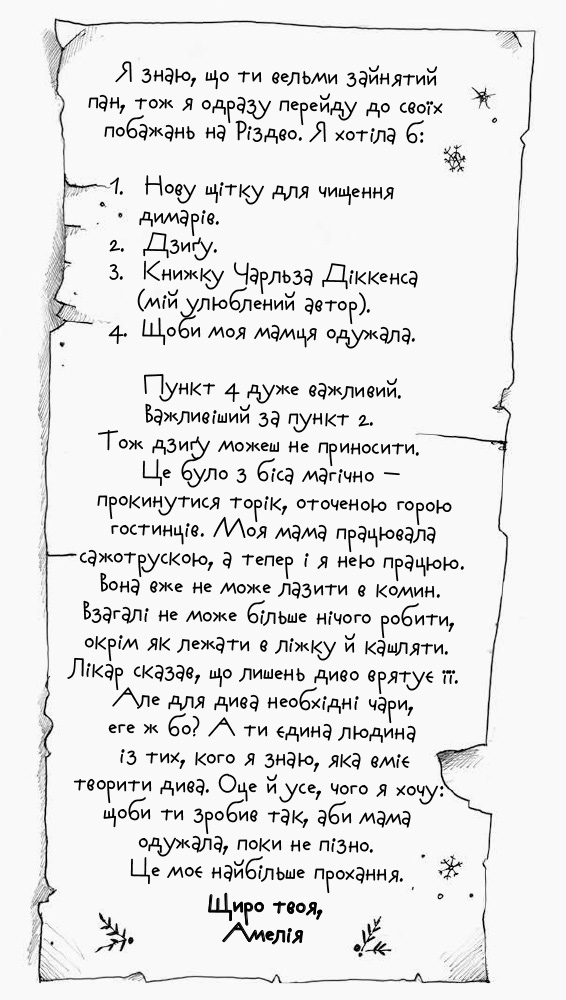 Я знаю, що ти вельми зайнятий
пан, тож я одразу перейду до своїх
побажань на Різдво. Я хотіла б:
1. Нову щітку для чищення
димарів.
2. Дзиґу.
3. Книжку Чарльза Діккенса
(мій улюблений автор).
4. Щоби моя мамця одужала.
Пункт 4 дуже важливий.
Важливіший за пункт 2.
Тож дзиґу можеш не приносити.
Це було з біса магічно —
прокинутися торік, оточеною горою
гостинців. Моя мама працювала
сажотрускою, а тепер і я нею працюю.
Вона вже не може лазити в комин.
Взагалі не може більше нічого робити,
окрім як лежати в ліжку й кашляти.
Лікар сказав, що лишень диво врятує її.
Але для дива необхідні чари,
еге ж бо? А ти єдина людина
із тих, кого я знаю, яка вміє
творити дива. Оце й усе, чого я хочу:
щоби ти зробив так, аби мама
одужала, поки не пізно.
Це моє найбільше прохання.
Щиро твоя,
Амелія